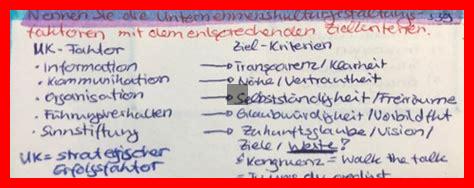 Nennen Sie die Unternehmenskulturgestaltungs- S39
faktoren mit dem entsprechenden Zielkriterien.
UK-Faktor Ziel-Kriterien
· Information → Transparenz/Klarheit
· Kommunikation → Nähe/Vertrautheit
· Organisation → Selbstständigkeit/Freiräume
· Führungsverhalten → Glaubwürdigkeit/Vorbildfkt
· Sinnstiftung → Zukunftsglaube/Vision/
Ziele/Werte?
UK = strategischer Kongruenz = Walk the talk
Erfolgsfaktor